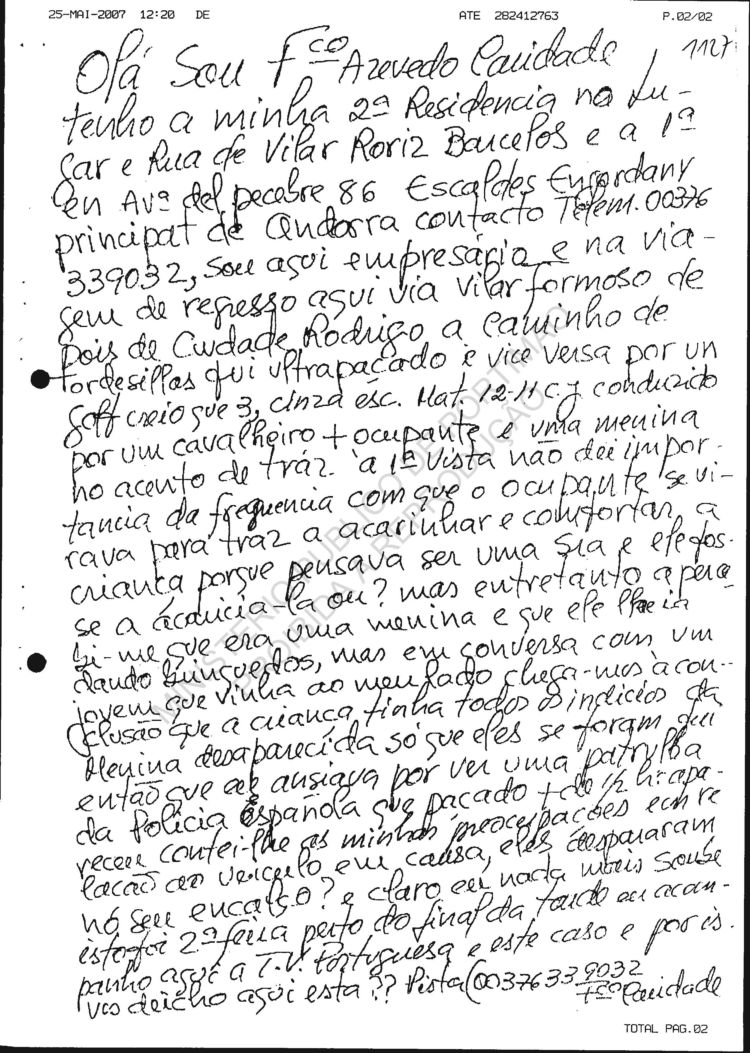 25-MAI-2007 12:20 DE ATE 282412763 P.02/02
1127
Olá Sou Fco Azevedo Caridade
tenho a minha 2ª Residencia no Lu-
gar e Rua de Vilar Roriz Barcelos e a 1ª
en Avª del pecebre 86 Escaldes Engordany
principat de Andorra contacto Telem. 00376
339032, Sou aqui empresário e na via-
gem de regresso aqui via Vilar formoso de
pois de Cwdade Rodrigo a caminho de
tordesillas fui ultrapaçado e vice versa por un
golf creio que 3, cinza esc. Mat. 12-11 cj conduzido
por um cavalheiro + ocupante e uma menina
no acento de tráz. à 1ª vista não dei impor-
tancia da frequencia com que o ocupante se vi-
rava para traz a acarinhar e comfortar a
criança porque pensava ser uma Sra e ele fos-
se a acaricia-la ou? mas entretanto aperce
bi-me que era uma menina e que ele lhe ia
dando brinquedos, mas em conversa com um
jovem que vinha ao meu lado chega-mos à con-
clusão que a criança tinha todos os indicios da
Menina desaparecida só que eles se foram fui
então que até ansiava por ver uma patrulha
da Policia Española que paçado + de 1/2 hr apa-
receu contei-lhe as minhas preocupações em re
lacão ao veiculo em causa, eles despararam
no seu encalso? e claro eu nada mais soube
isto foi 2ª feira perto do final da tarde eu acom-
panho aqui a T.V. Portuguesa e este caso e por is.
vos deicho aqui esta?? Pista (00376339032
Fco Caridade
MINISTÉRIO PÚBLICO DE PORTIMÃO
PROIBIDA A REPRODUÇÃO
TOTAL PAG.02